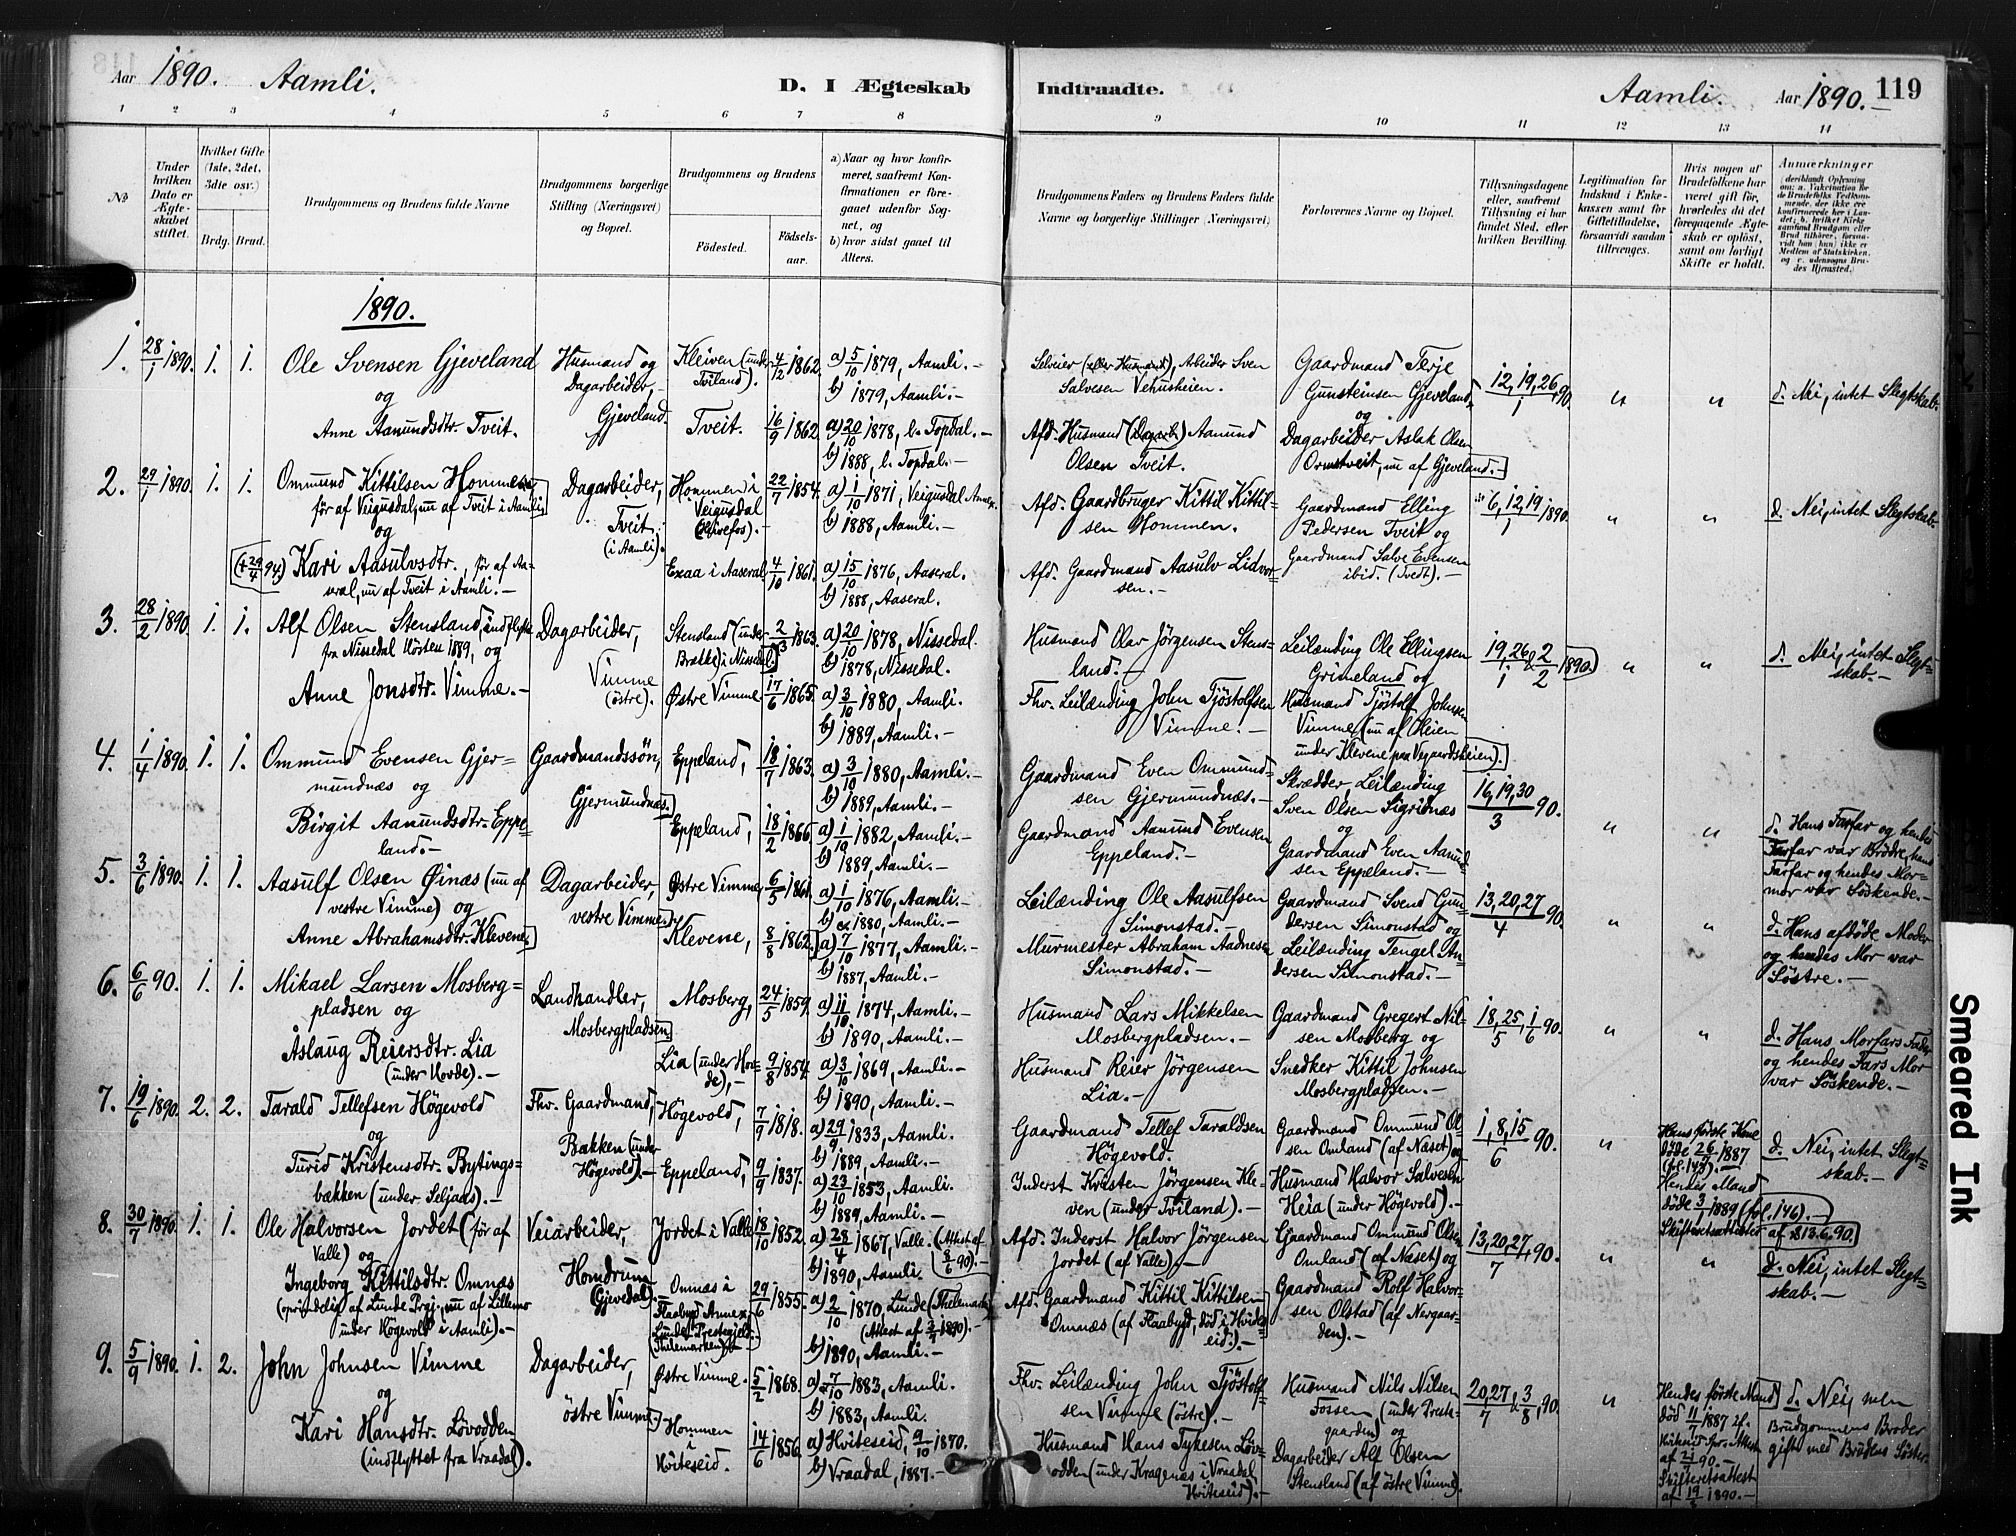 Aar 1890. Aamli. D. I Ægteskab Indtraadte. Aamli. Aar 1890.– 119
1 2 3 4 5 6 7 8 9 10 11 12 13 14
№
Under hvilken Dato er Ægteskabet stiftet.
Hvilket Gifte (1ste, 2det, 3die osv.)
Brdg. Brud.
Brudgommens og Brudens fulde Navne
Brudgommens borgerlige Stilling (Næringsvei) og Bopæl.
Brudgommens og Brudens
Fødested. Fødselsaar.
a) Naar og hvor konfirmeret, saafremt Konfirmationen er foregaaet udenfor Sognet, og
b) hvor sidst gaaet til Alters.
Brudgommens Faders og Brudens Faders fulde Navne og borgerlige Stillinger (Næringsvei)
Forlovernes Navne og Bopæl.
Tillysningsdagene eller, saafremt Tillysning ei har fundet Sted, efter hvilken Bevilling.
Legitimation for Indskud i Enkekassen samt for Giftetilladelse, forsaavidt saadan tiltrænges.
Hvis nogen af Brudefolkene har været gift før, hvorledes da det foregaaende Ægteskab er opløst, samt om lovligt Skifte er holdt.
Anmærkninger (deriblandt Oplysning om: a. Vakcination for de Brudefolks Vedkommende, der ikke ere konfirmerede her i Landet; b. hvilket Kirkesamfund Brudgom eller Brud tilhører, forsaavidt han (hun) ikke er Medlem af Statskirken, og c. udensogns Brudes Hjemsted.)
1890.
1. 28/1 1890. 1. 1. Ole Svensen Gjeveland
og
Anne Aamundsdtr. Tveit.
Husmand og Dagarbeider, Gjeveland.
Kleiven (under Tviland). 4/12 1862.
Tveit. 16/9 1862
a) 5/10 1879, Aamli.–
b) 1879, Aamli.–
a) 20/10 1878, b. Topdal.–
b) 1888, b. Topdal.–
Selveier (eller Husmand), Arbeider Sven Salvesen Vehusheien.
Afd. Husmand (Dagarb.) Aamund Olsen Tveit.
Gaardmand Terje Gunsteinsen Gjeveland og
Dagarbeider Aslak Olsen Ormstveit, nu af Gjeveland.–
12, 19, 26/1 90. " " d. Nei, intet Slegtskab.
2. 29/1 1890. 1. 1. Ommund Kittilsen Hommen,
før af Veigusdal, nu af Tveit i Aamli,
og
(+ 29/4 94) Kari Aasulvsdtr., før af Aaseral, nu af Tveit i Aamli.–
Dagarbeider, Tveit, (i Aamli).
Hommen i Veigusdal 22/7 1854.
Exaa i Aaseral 4/10 1861.
a) 1/10 1871, Veigusdal Annex.
b) 1888, Aamli.–
a) 15/10 1876, Aaseral.
b) 1888, Aaseral.
Afd. Gaardbruger Kittil Kittilsen Hommen.
Afd. Gaardmand Aasulv Lidvorsen.–
Gaardmand Elling Pedersen Tveit og
Gaardmand Salve Evensen ibid. (Tvedt).–
6, 12, 19/1 1890. " " d. Nei, intet Slegtskab.
3. 28/2 1890. 1. 1. Alf Olsen Stensland, indflyttet
fra Nissedal Høsten 1889, og
Anne Jonsdtr. Vimme.–
Dagarbeider, Vimme (østre).
Stensland (under Brække) i Nissedal, 2/3 1863.
Østre Vimme 17/6 1865.
a) 20/10 1878, Nissedal.
b) 1878, Nissedal.
a) 3/10 1880, Aamli.
b) 1889, Aamli.–
Husmand Olav Jörgensen Stensland.–
Fhv. Leilænding John Tjöstolfsen Vimme.–
Leilænding Ole Ellingsen Grimeland og
Husmand Tjöstolf Johnsen Vimme (nu af Oleien under Klevene paa Vegaardsheien).
19, 26/1 & 2/2 1890 " " d. Nei, intet Slegtskab.–
4. 1/4 1890. 1. 1. Ommund Evensen Gjermundnæs og
Birgit Aamundsdtr. Eppeland.–
Gaardmandssön, Gjermundnæs.
Eppeland, 18/7 1863.
Eppeland, 18/2 1866.
a) 3/10 1880, Aamli.–
b) 1889, Aamli.–
a) 1/10 1882, Aamli.–
b) 1889, Aamli.–
Gaardmand Even Ommundsen Gjermundnæs.–
Gaardmand Aamund Evensen Eppeland.–
Skrædder, Leilænding Sven Olsen Sigridnæs og
Gaardmand Even Aamundsen Eppeland.–
16, 19, 30/3 90. " " d. Hans Farfar og hendes Farfar var Brødre, hans Farfar og hendes Mormor var Söskende.–
5. 3/6 1890. 1. 1. Aasulf Olsen Øinæs (nu af
vestre Vimme) og
Anne Abrahamsdtr. Klevene.
Dagarbeider, vestre Vimme.
Østre Vimme 6/5 1861.
Klevene, 8/8 1862.
a) 1/10 1876, Aamli.–
b) 1880, Aamli.–
a) 7/10 1877, Aamli.–
b) 1887, Aamli.–
Leilænding Ole Aasulfsen Simonstad.–
Murmester Abraham Aadnesen Simonstad.–
Gaardmand Svend Gundersen Simonstad og
Leilænding Tengel Andersen Simonstad.–
13, 20, 27/4 90. " " d. Hans afdöde Moder og hendes Mor var Söstre.–
6. 6/6 90. 1. 1. Mikael Larsen Mosbergpladsen og
Åslaug Reiersdtr. Lia
(under Hovde).–
Landhandler, Mosbergpladsen.
Mosberg, 24/5 1859.
Lia (under Hovde), 9/8 1854.
a) 11/10 1874, Aamli.–
b) 1890, Aamli.–
a) 3/10 1869, Aamli.–
b) 1890, Aamli.–
Husmand Lars Mikkelsen Mosbergpladsen.–
Husmand Reier Jörgensen Lia.–
Gaardmand Gregert Nilsen Mosberg og
Snedker Kittil Johnsen Mosbergpladsen.–
18, 25/5, 1/6 90. " " d. Hans Morfars Fader og hendes Fars Mor var Söskende.–
7. 19/6 1890. 2. 2. Tarald Tellefsen Högevold
og
Turid Kristensdtr. Bytingsbakken (under Seljaas).–
Fhv. Gaardmand, Bakken (under Högevold).–
Högevold, 7/9 1818.
Eppeland, 9/9 1837.
a) 29/9 1833, Aamli.–
b) 1889, Aamli.–
a) 23/10 1853, Aamli.
b) 1889, Aamli.–
Gaardmand Tellef Taraldsen Högevold.
Inderst Kristen Jörgensen Kleven (under Tviland).–
Gaardmand Ommund Olsen Omland (af Næset) og
Husmand Halvor Salvesen Heia (under Högevold).–
1, 8, 15/6 90. " Hans første Kone döde 1887 (fol. 143).– Hendes Mand döde 1889 (fol. 146).– Skifteretsattester af 13.6.90. d. Nei, intet Slegtskab.–
8. 30/7 1890. 1. 1. Ole Halvorsen Jordet (før af
Valle) og
Ingeborg Kittilsdtr. Omnæs
(oprindelig af Lunde Prgj., nu af Lillemo
under Högevold i Aamli).–
Veiarbeider, Homdrum (Gjevedal).
Jordet i Valle 18/10 1852.
Omnæs i Flaabygd Annex, Lunde Prestegjeld, (Thelemarken). 29/6 1855.
a) 28/4 1867, Valle. (Attest af 8/6 90).–
b) 1890, Aamli.
a) 2/10 1870 Lunde (Thelemarken)
b) 1890, Aamli.–
Afd. Inderst Halvor Jörgensen Jordet (af Valle).–
Afd. Gaardmand Kittil Kittilsen Omnæs (af Flaabygd, död i Hvideseid).–
Gaardmand Ommund Olsen Omland (af Næset) og
Gaardmand Rolf Halvorsen Olstad (af Nergaarden).–
13, 20, 27/7 90. " " d. Nei, intet Slegtskab.–
9. 5/9 1890. 1. 2. John Johnsen Vimme
og
Kari Hansdtr. Lövodden
(indflyttet fra Vraadal).
Dagarbeider, østre Vimme.
Østre Vimme. 5/2 1868.
Hommen i Kviteseid. 14/6 1856.
a) 7/10 1883, Aamli.
b) 1883, Aamli.
a) Hviteseid, 9/10 1870.
b) Vraadal, 1887.–
Fhv. Leilænding John Tjöstolfsen Vimme (østre).–
Husmand Hans Tykesen Lövodden (under Kragenæs i Vraadal Hviteseid).–
Husmand Nils Nilsen Fossen (under Prestegaarden) og
Dagarbeider Alf Olsen Stensland (af østre Vimme).
20, 27/7 & 3/8 90. " Hendes første Mand död 1887 Skifteretsattest af 19/5 1890.–
d. Nei, men Brudgommens Broder gift med Brudens Söster.
Smeared Ink